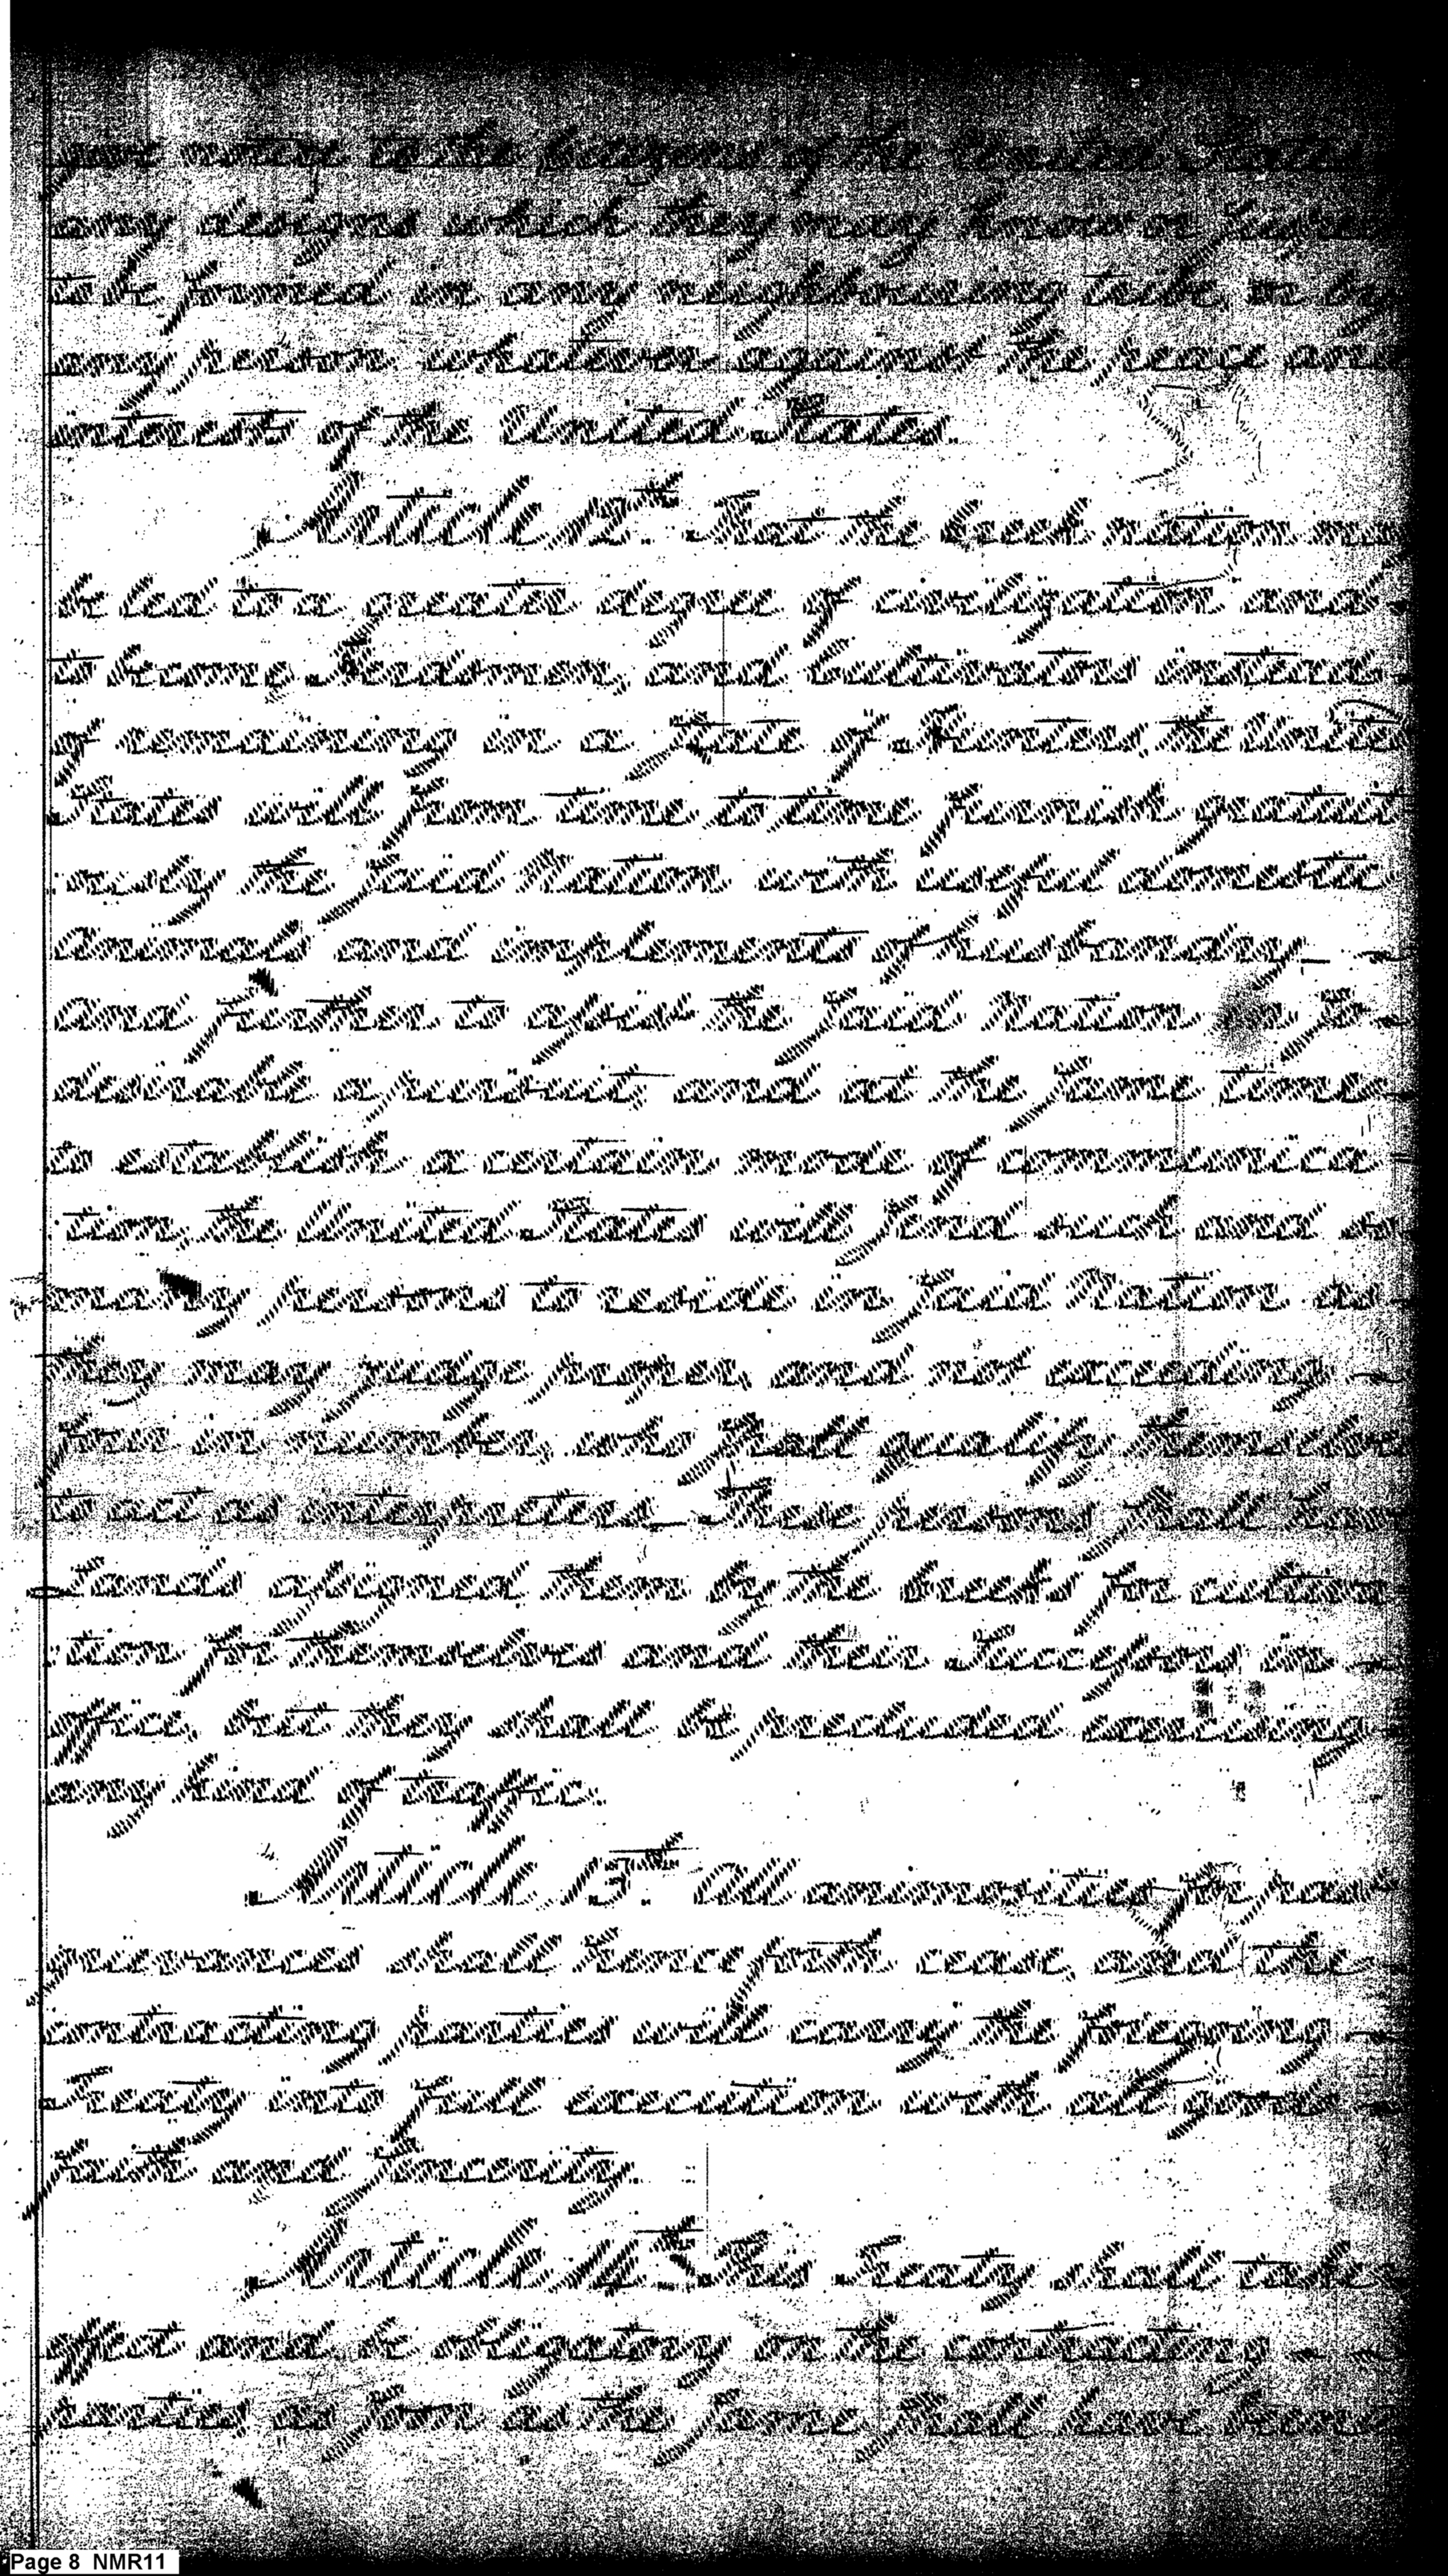 give notice to the Citizens of the United States
any designs which they may know or suspect
to be formed in any neighbouring tribe, or by
any person whatever against the peace and
interests of the United States.
Article 12th. That the creek nation may
be led to a greater degree of civilization and
to become Herdmen, and cultivators instead
of remaining in a State of Hunters, the United
States will from time to time furnish gratuit
:ously the said Nation with useful domestic
Animals and implements of husbandry_
And further to assist the said Nation in so
desirable a pursuit, and at the same time
to establish a certain mode of communica
:tion, the United States will send such and so
many persons to reside in said Nation as
they may judge proper, and not exceeding
four in number, who shall qualify themselves
to act as interpreters_ These persons shall have
lands assigned them by the Creeks for cultiva
:tion for themselves and their Successors in
office, but they shall be precluded exercising
any kind of traffic.
Article 13th. All animosities for past
grievances shall henceforth cease, and the
contracting parties will carry the foregoing
Treaty into full execution with all good
faith and sincerity.
Article 14th. This Treaty shall take
effect and be obligatory on the contracting
parties as soon as the same shall have been
Page 8 NMR11